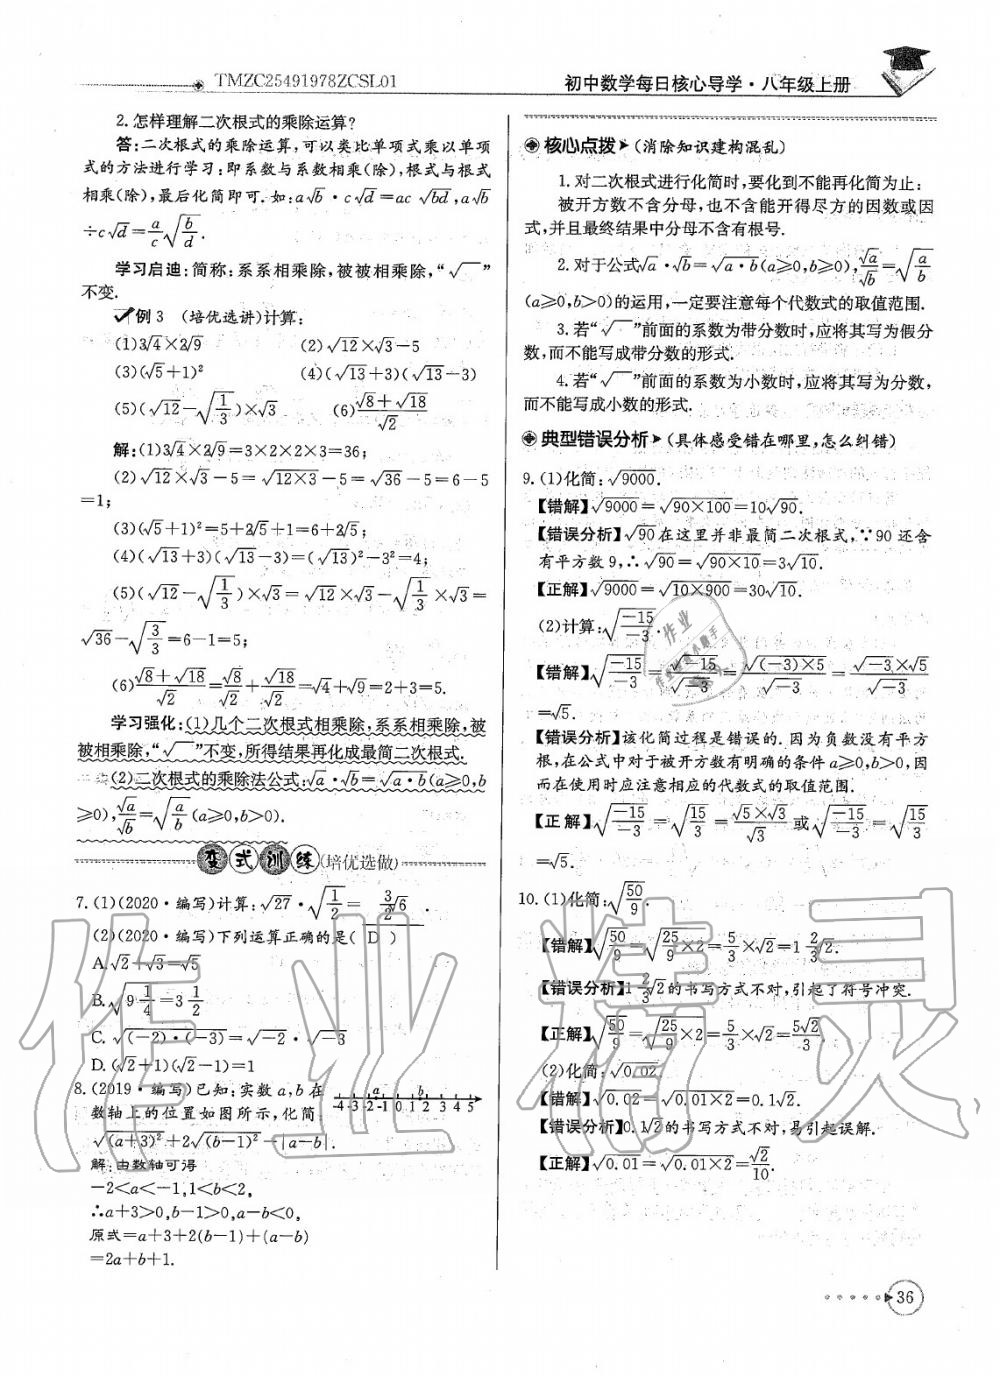 TMZC25491978ZCSL01
初中数学每日核心导学·八年级上册
2.怎样理解二次根式的乘除运算?
答:二次根式的乘除运算,可以类比单项式乘以单项
式的方法进行学习:即系数与系数相乘(除),根式与根式
相乘(除),最后化简即可.如:a√b·c√d=ac √bd,a√b
÷c√d=a/c√(b/d).
学习启迪:简称:系系相乘除,被被相乘除,“√ ”
不变.
例3 (培优选讲)计算:
(1)3√4×2√9 (2)√12×√3-5
(3)(√5+1)² (4)(√13+3)(√13-3)
(5)(√12-√(1/3))×√3 (6)(√8+√18)/√2
解:(1)3√4×2√9=3×2×2×3=36;
(2)√12×√3-5=√(12×3)-5=√36-5=6-5
=1;
(3)(√5+1)²=5+2√5+1=6+2√5;
(4)(√13+3)(√13-3)=(√13)²-3²=4;
(5)(√12-√(1/3))×√3=√12×√3-√(1/3)×√3=
√36-√(3/3)=6-1=5;
(6)(√8+√18)/√2=√8/√2+√18/√2=√4+√9=2+3=5.
学习强化:(1)几个二次根式相乘除,系系相乘除,被
被相乘除,“√ ”不变,所得结果再化成最简二次根式.
(2)二次根式的乘除法公式:√a·√b=√(a·b)(a≥0,b
≥0),√a/√b=√(a/b)(a≥0,b>0).
变式训练(培优选做)
7.(1)(2020·编写)计算:√27·√(1/2)= 3/2√6 .
(2)(2020·编写)下列运算正确的是( D )
A.√2+√3=√5
B.√(9 1/4)=3 1/2
C.√((-2)·(-3))=√-2·√-3
D.(√2+1)(√2-1)=1
8.(2019·编写)已知:实数a,b在
数轴上的位置如图所示,化简
√(a+3)²+2√(b-1)²-|a-b|.
a b
-4-3-2-1 0 1 2 3 4 5
解:由数轴可得
-2<a<-1,1<b<2,
∴a+3>0,b-1>0,a-b<0,
原式=a+3+2(b-1)+(a-b)
=2a+b+1.
核心点拨(消除知识建构混乱)
1.对二次根式进行化简时,要化到不能再化简为止:
被开方数不含分母,也不含能开得尽方的因数或因
式,并且最终结果中分母不含有根号.
2.对于公式√a·√b=√(a·b)(a≥0,b≥0),√a/√b=√(a/b)
(a≥0,b>0)的运用,一定要注意每个代数式的取值范围.
3.若“√ ”前面的系数为带分数时,应将其写为假分
数,而不能写成带分数的形式.
4.若“√ ”前面的系数为小数时,应将其写为分数,
而不能写成小数的形式.
典型错误分析(具体感受错在哪里,怎么纠错)
9.(1)化简:√9000.
【错解】√9000=√(90×100)=10√90.
【错误分析】√90在这里并非最简二次根式,∵90还含
有平方数9,∴√90=√(90×10)=3√10.
【正解】√9000=√(10×900)=30√10.
(2)计算:√(-15/-3).
【错解】√(-15/-3)=√-15/√-3=√((-3)×5)/√-3=(√-3×√5)/√-3
=√5.
【错误分析】该化简过程是错误的.因为负数没有平方
根,在公式中对于被开方数有明确的条件a≥0,b>0,因
而在使用时应注意相应的代数式的取值范围.
【正解】√(-15/-3)=√(15/3)=(√5×√3)/√3或√(-15/-3)=√(15/3)
=√5.
10.(1)化简:√(50/9).
【错解】√(50/9)=√(25/9×2)=5/3×√2=1 2/3√2.
【错误分析】1 2/3√2的书写方式不对,引起了符号冲突.
【正解】√(50/9)=√(25/9×2)=5/3×√2=5√2/3.
(2)化简:√0.02.
【错解】√0.02=√(0.01×2)=0.1√2.
【错误分析】0.1√2的书写方式不对,易引起误解.
【正解】√0.01=√(0.01×2)=√2/10.
36
作业精灵